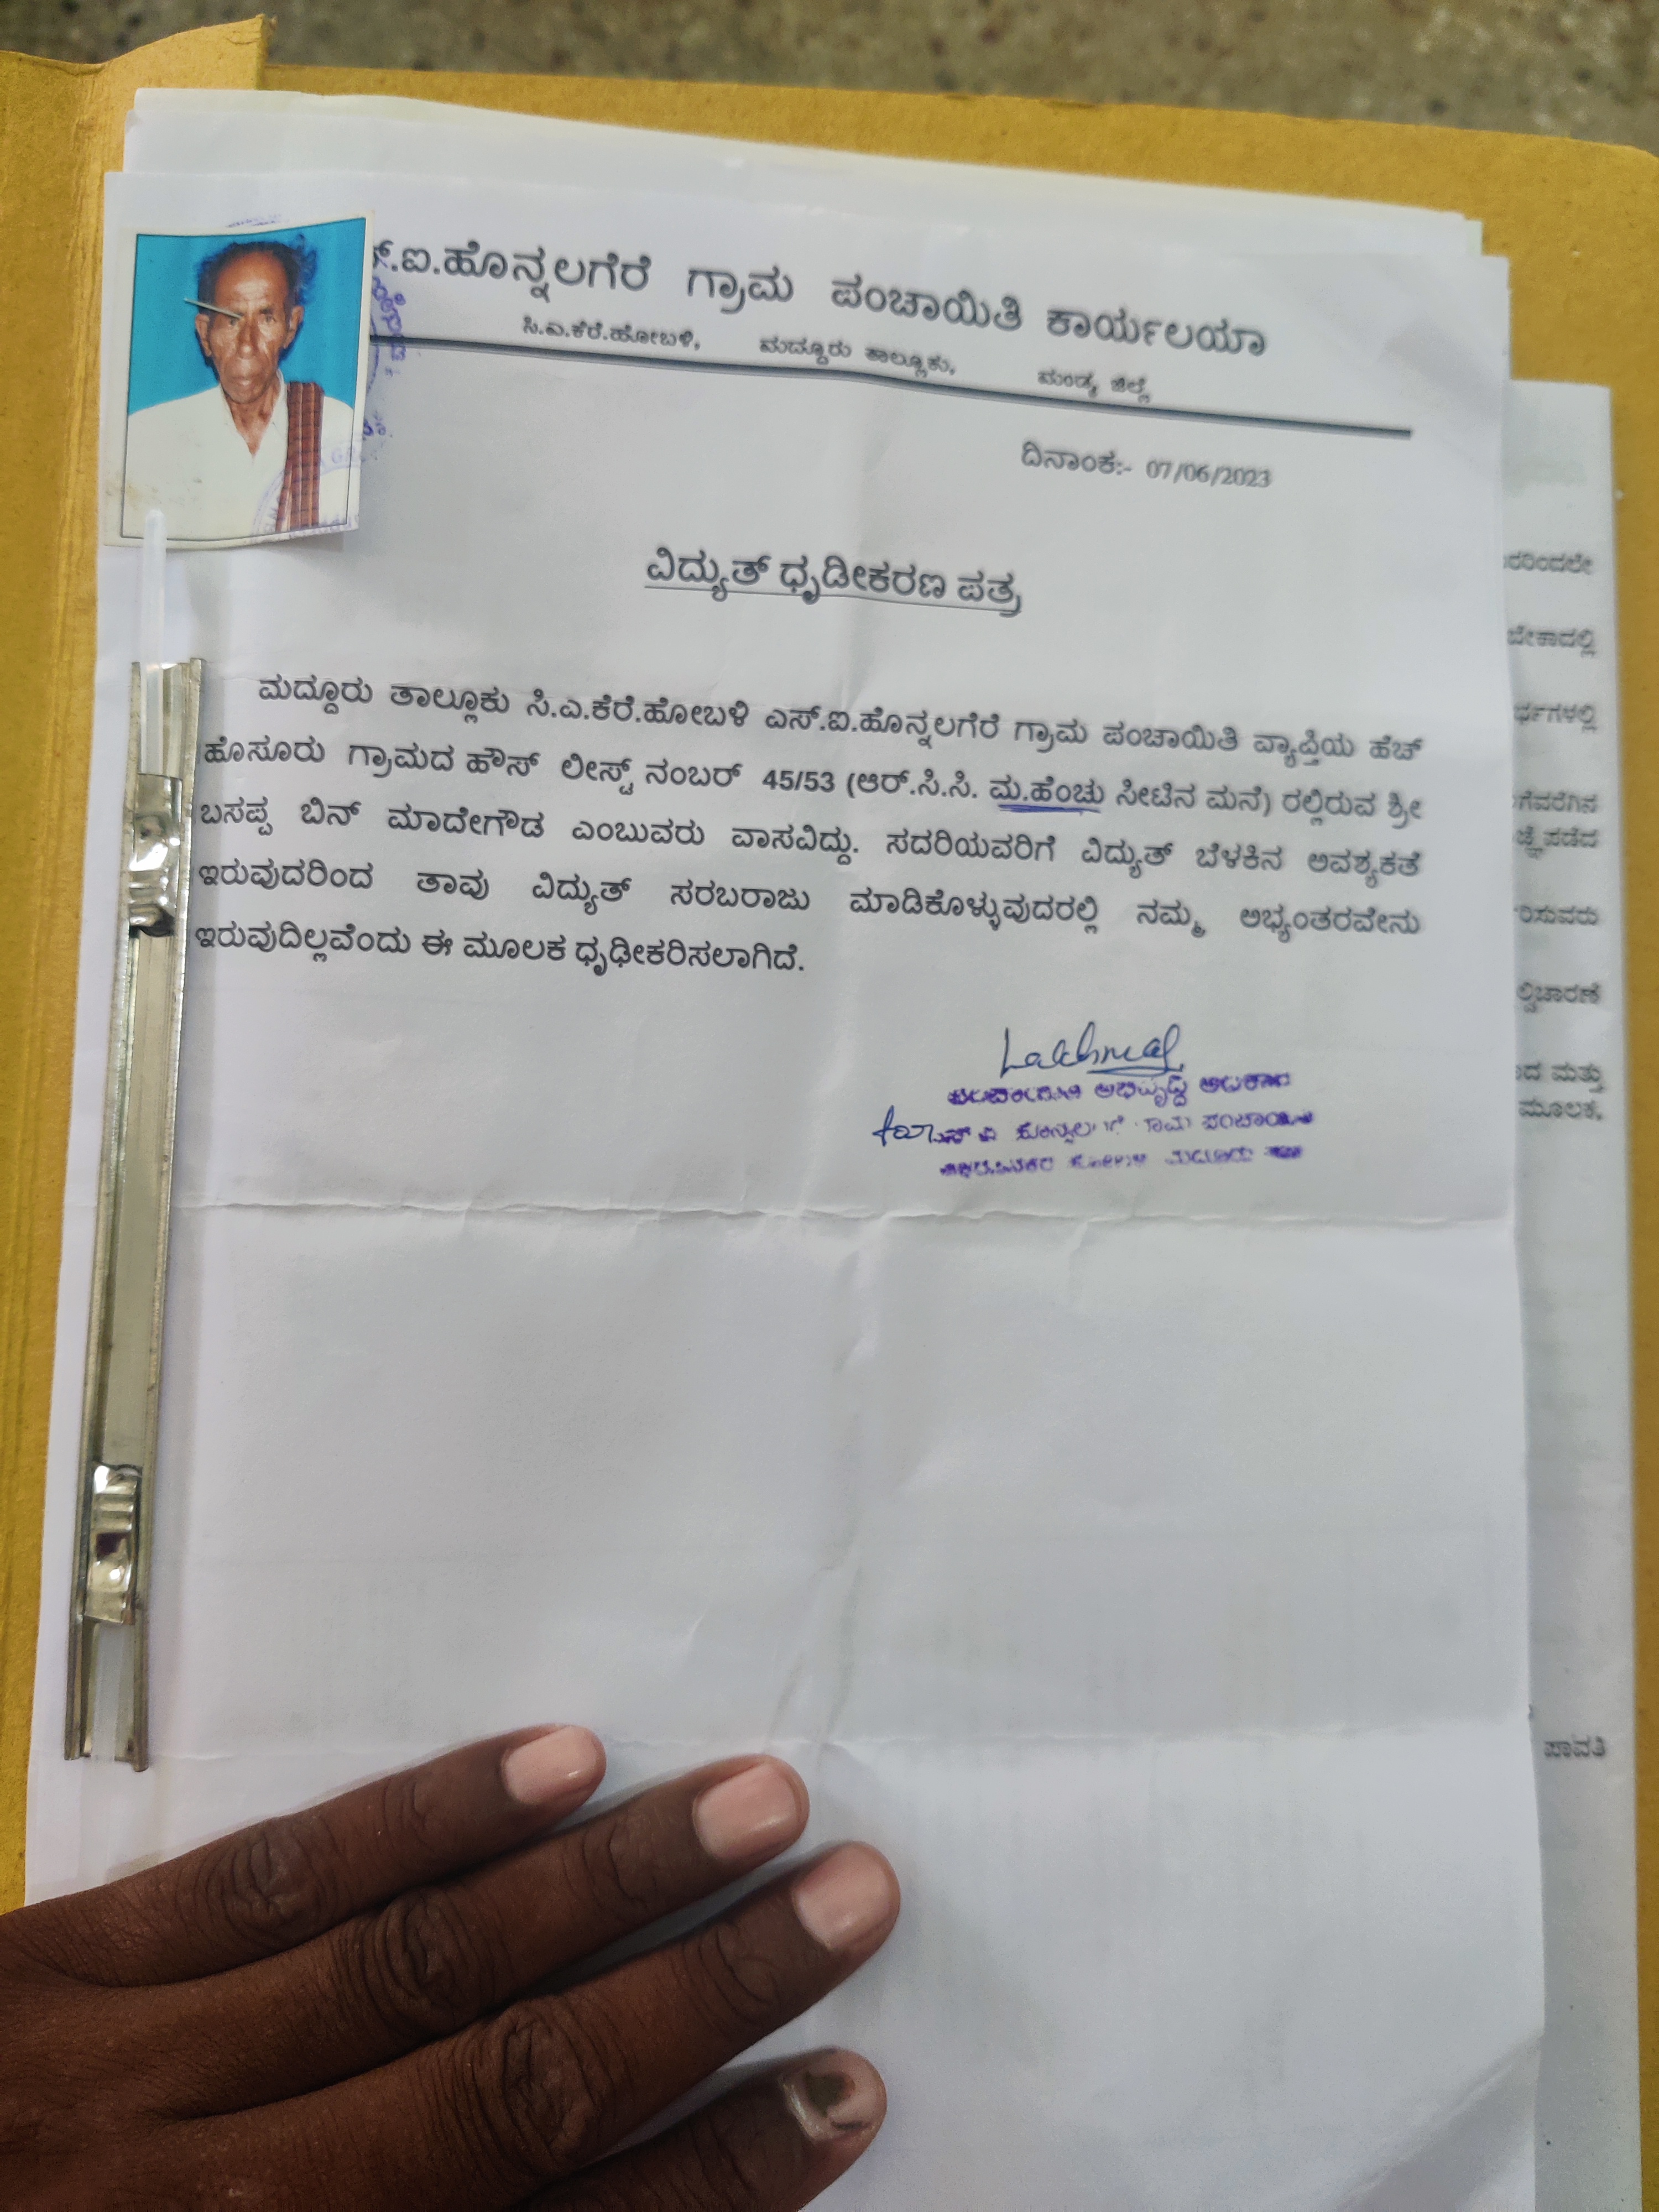 ಸ್.ಐ.ಹೊನ್ನಲಗೆರೆ ಗ್ರಾಮ ಪಂಚಾಯಿತಿ ಕಾರ್ಯಲಯಾ
ಸಿ.ಎ.ಕೆರೆ.ಹೋಬಳಿ, ಮದ್ದೂರು ತಾಲ್ಲೂಕು, ಮಂಡ್ಯ ಜಿಲ್ಲೆ
ದಿನಾಂಕ:- 07/06/2023
ವಿದ್ಯುತ್ ಧೃಡೀಕರಣ ಪತ್ರ
ಮದ್ದೂರು ತಾಲ್ಲೂಕು ಸಿ.ಎ.ಕೆರೆ.ಹೋಬಳಿ ಎಸ್.ಐ.ಹೊನ್ನಲಗೆರೆ ಗ್ರಾಮ ಪಂಚಾಯಿತಿ ವ್ಯಾಪ್ತಿಯ ಹೆಚ್
ಹೊಸೂರು ಗ್ರಾಮದ ಹೌಸ್ ಲೀಸ್ಟ್ ನಂಬರ್ 45/53 (ಆರ್.ಸಿ.ಸಿ. ಮ.ಹೆಂಚು ಸೀಟಿನ ಮನೆ) ರಲ್ಲಿರುವ ಶ್ರೀ
ಬಸಪ್ಪ ಬಿನ್ ಮಾದೇಗೌಡ ಎಂಬುವರು ವಾಸವಿದ್ದು. ಸದರಿಯವರಿಗೆ ವಿದ್ಯುತ್ ಬೆಳಕಿನ ಅವಶ್ಯಕತೆ
ಇರುವುದರಿಂದ ತಾವು ವಿದ್ಯುತ್ ಸರಬರಾಜು ಮಾಡಿಕೊಳ್ಳುವುದರಲ್ಲಿ ನಮ್ಮ ಅಭ್ಯಂತರವೇನು
ಇರುವುದಿಲ್ಲವೆಂದು ಈ ಮೂಲಕ ಧೃಢೀಕರಿಸಲಾಗಿದೆ.
ಅಭಿವೃದ್ಧಿ ಅಧಿಕಾರಿ
ಗ್ರಾಮ ಪಂಚಾಯಿತಿ
ಬೇಕಾದಲ್ಲಿ
ಮತ್ತು
ಮೂಲಕ,
ಪಾವತಿ